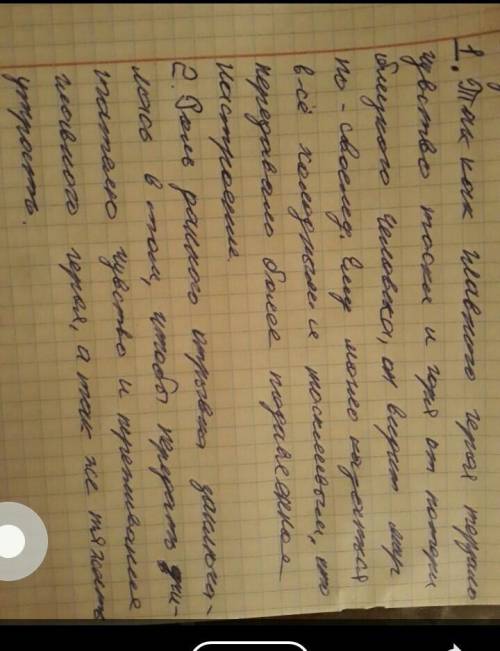 1. Так как главного героя терзало
чувство тоски и горя от потери
близкого человека, он видит мир
по-своему. Ему могло казаться
всё холодным и тоскливым, что
передавало более подавленное
настроение.
2. Роль данного отрывка заключа-
лось в том, чтобы передать чи-
тателю чувство и переживания
главного героя, а так же тяжесть
утраты.